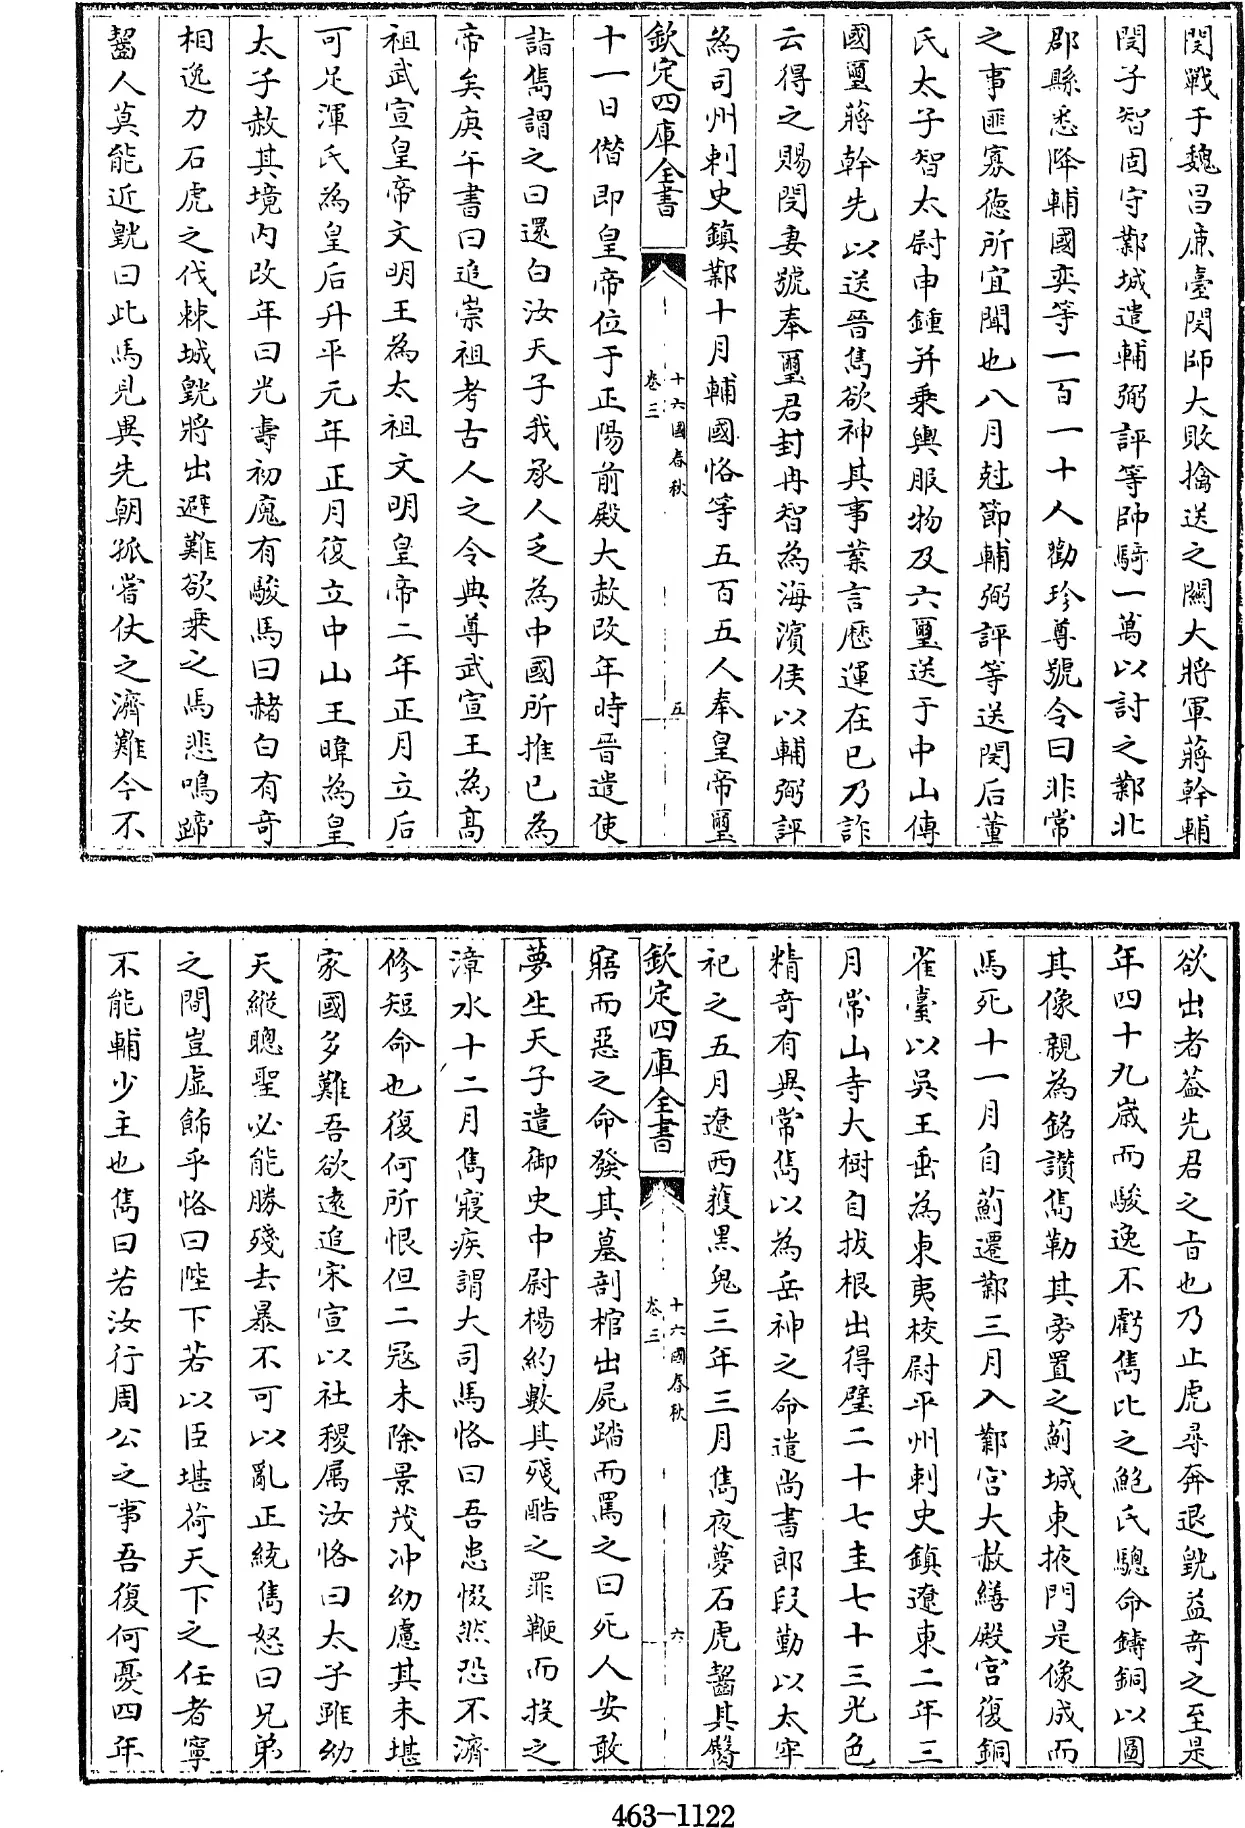 閔戰于魏昌㢘臺閔師大敗擒送之闕大將軍蔣幹輔
閔子智固守鄴城遣輔弼評等帥騎一萬以討之鄴北
郡縣悉降輔國奕等一百一十人勸珍尊號令曰非常
之事匪寡徳所宜聞也八月尅節輔弼評等送閔后董
氏太子智太尉申鍾并乗輿服物及六璽送于中山傳
國璽蔣幹先以送晉雋欲神其事業言厯運在已乃詐
云得之賜閔妻號奉璽君封冉智為海濱侯以輔弼評
為司州刺史鎮鄴十月輔國恪等五百五人奉皇帝璽
欽定四庫全書
十六國春秋
卷三
五
十一日偕即皇帝位于正陽前殿大赦改年時晉遣使
詣雋謂之曰還白汝天子我承人乏為中國所推已為
帝矣庚午書曰追崇祖考古人之令典尊武宣王為髙
祖武宣皇帝文明王為太祖文明皇帝二年正月立后
可足渾氏為皇后升平元年正月復立中山王暐為皇
太子赦其境内改年曰光壽初廆有駿馬曰赭白有奇
相逸力石虎之伐棘城皝將出避難欲乗之馬悲鳴蹄
齧人莫能近皝曰此馬見異先朝孤嘗仗之濟難今不
欲出者葢先君之㫖也乃止虎尋奔退皝益奇之至是
年四十九嵗而駿逸不虧雋比之鮑氏驄命鑄銅以圖
其像親為銘讃雋勒其旁置之薊城東掖門是像成而
馬死十一月自薊遷鄴三月入鄴宮大赦繕殿宮復銅
雀臺以吳王垂為東夷校尉平州刺史鎮遼東二年三
月常山寺大樹自拔根出得璧二十七圭七十三光色
精奇有異常雋以為岳神之命遣尚書郎段勤以太牢
祀之五月遼西獲黒兎三年三月雋夜夢石虎齧其臂
欽定四庫全書
十六國春秋
卷三
六
寤而惡之命發其墓剖棺出屍蹋而罵之曰死人安敢
夢生天子遣御史中尉楊約數其殘酷之罪鞭而投之
漳水十二月雋寢疾謂大司馬恪曰吾患惙然恐不濟
修短命也復何所恨但二冦未除景茂冲幼慮其未堪
家國多難吾欲逺追宋宣以社稷属汝恪曰太子雖幼
天縱聰聖必能勝殘去暴不可以亂正統雋怒曰兄弟
之間豈虛飾乎恪曰陛下若以臣堪荷天下之任者寧
不能輔少主也雋曰若汝行周公之事吾復何憂四年
463-1122